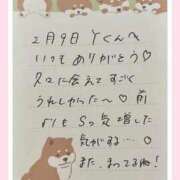 2月9日 Yくんへ
いつもありがとう♡
久々に会えてすごく
うれしかった〜♡ 前
よりもSっ気増した
気がする…♡
また、まってるね!